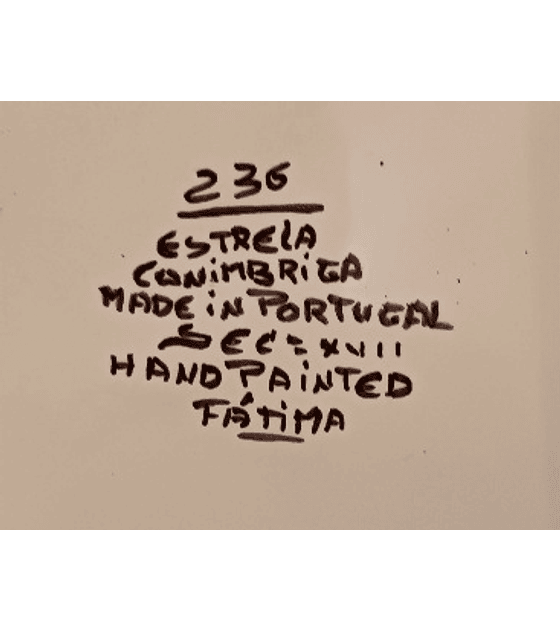 236
ESTRELA
CONIMBRIGA
MADE IN PORTUGAL
SEC= XVII
HAND PAINTED
FÁTIMA